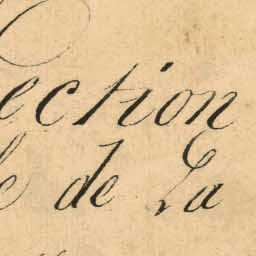 ection
de La